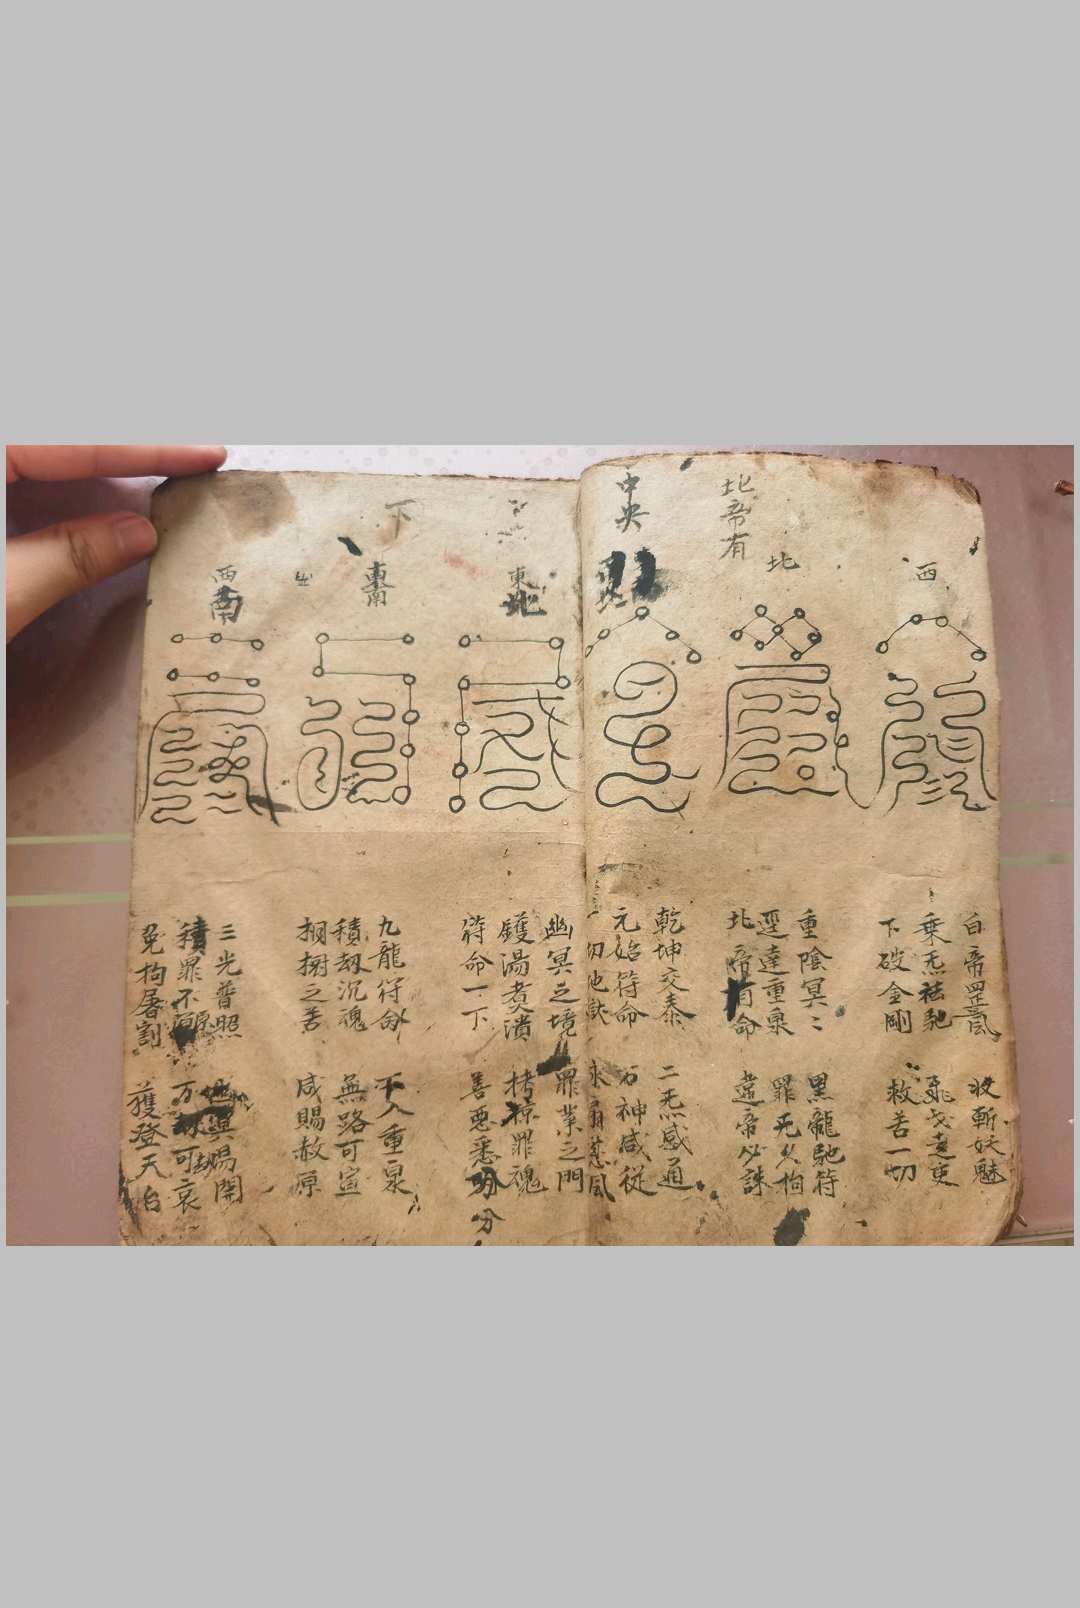 西
白帝罡炁 收斬妖魅
乘炁祛馳
下破金剛 救苦一切
北
北帝有
重陰冥〻 黑龍馳符
逕達重泉 罪无久拘
北帝有命 違帝必誅
中央
乾坤交泰 二炁感通
元始符命 石神咸從
東北
幽冥之境 罪業之門
鑊湯煮潰 拷掠罪魂
符命一下 善惡悉分
分
下
東南
九龍符命 下入重泉
積劫沉魂 無路可宣
之苦 咸賜赦原
西南
三光普照 開
積罪不 万 可哀
免拘屠割 獲登天台